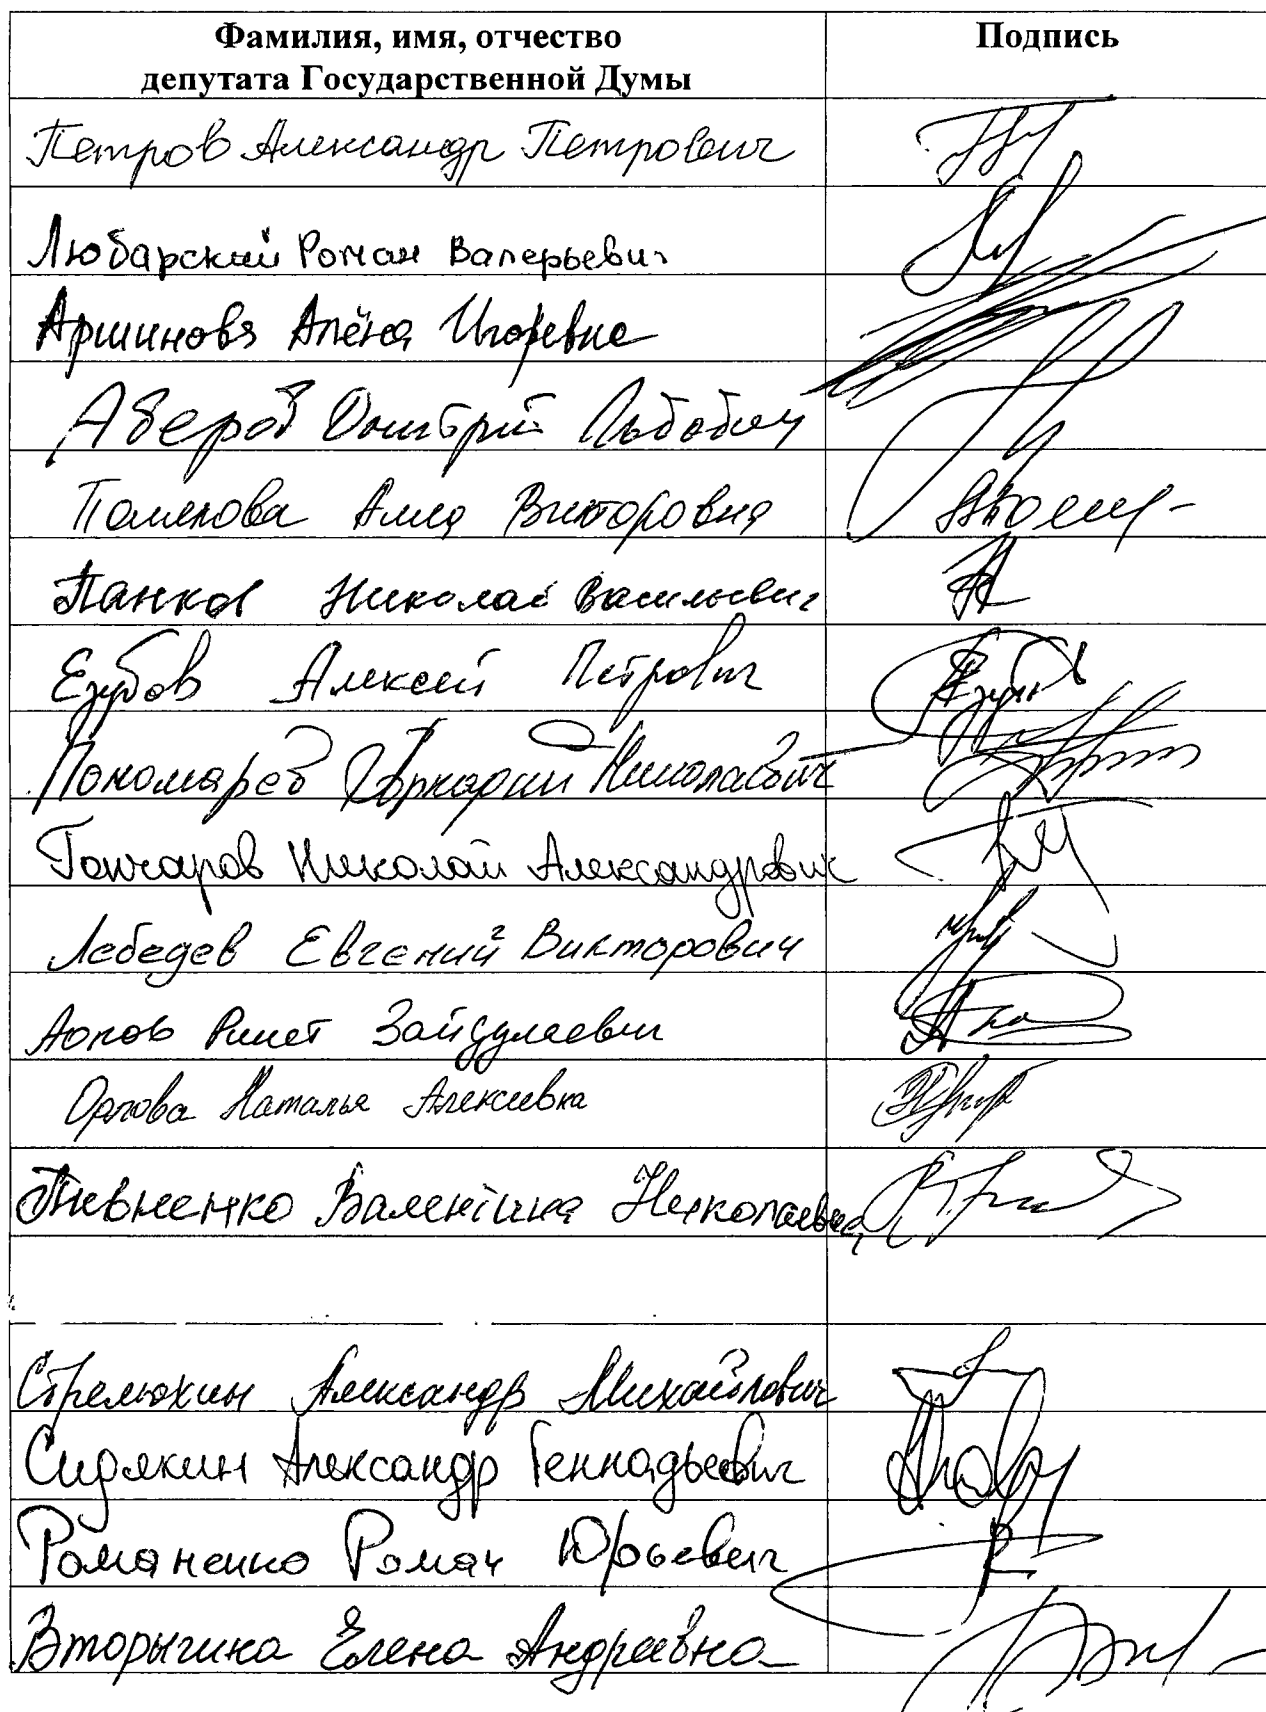 Фамилия, имя, отчество
депутата Государственной Думы
Подпись
Петров Александр Петрович
Любарский Роман Валерьевич
Аршинова Алёна Игоревна
Аверов Дмитрий
Викторовна
Панков Николай Васильевич
Езубов Алексей Петрович
Пономарев Аркадий Николаевич
Гончаров Николай Александрович
Лебедев Евгений Викторович
Зайдулаевич
Орлова Наталья Алексеевна
Пивненко Валентина Николаевна
Стрелюхин Александр Михайлович
Сидякин Александр Геннадьевич
Романенко Роман Юрьевич
Вторыгина Елена Андреевна